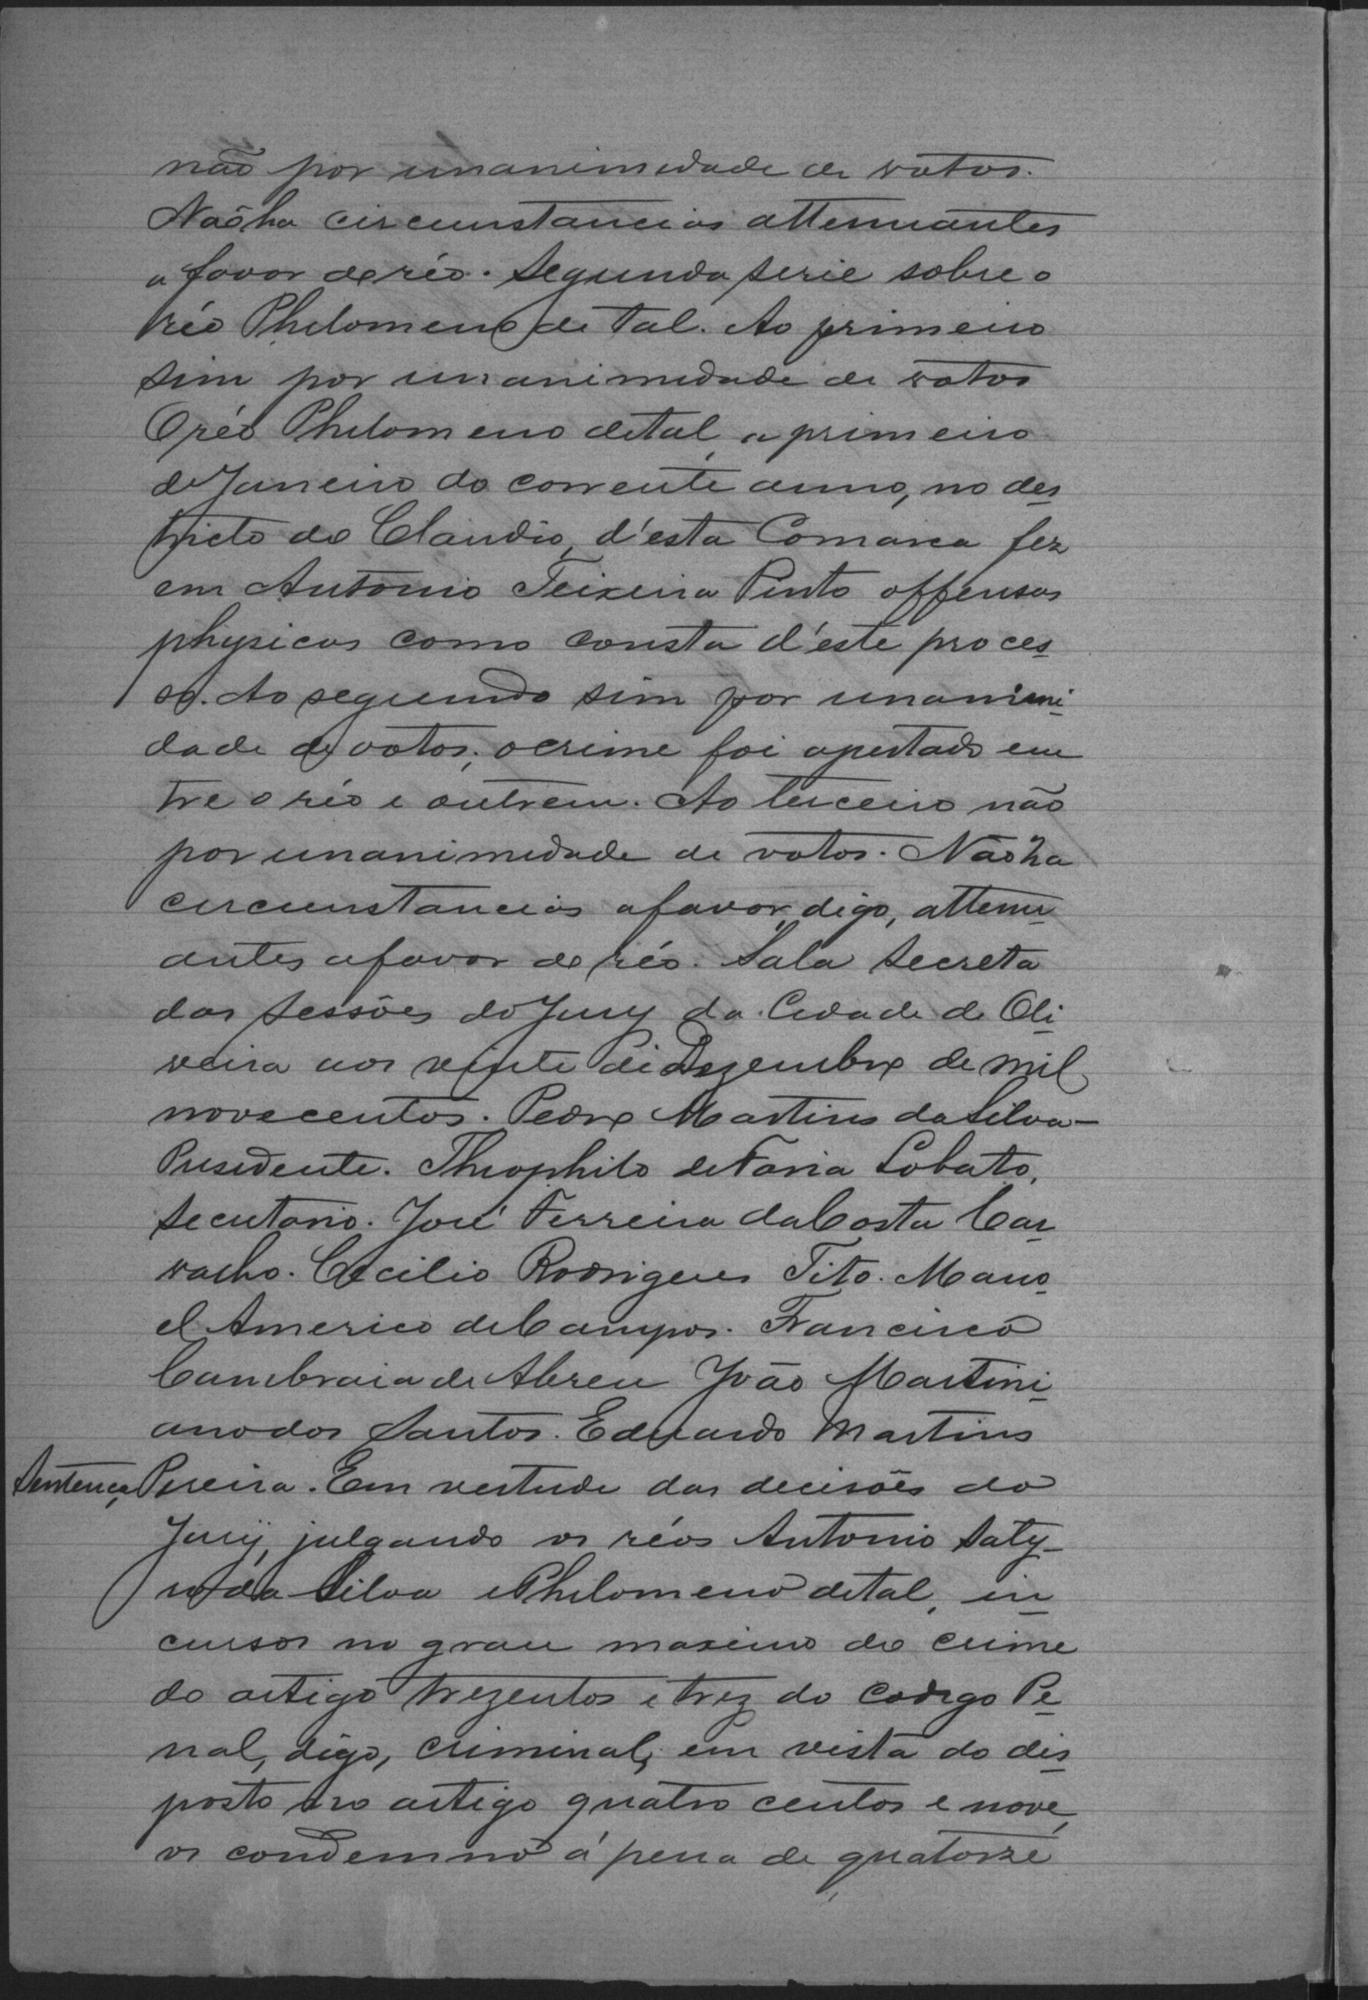 não por unanimidade de votos.
Não ha circumstancias attenuantes
a favor do réo. Segunda serie sobre o
réo Philomeno de tal. Ao primeiro
sim por unanimidade de votos
O réo Philomeno de tal, a primeiro
de Janeiro do corrente anno, no des
tricto do Claudio, d'esta Comarca fez
em Antonio Teixeira Pinto offensas
physicas como consta d'este proces
so. Ao segundo sim por unanimi
dade de votos; o crime foi ajustado en
tre o réo e outrem. Ao terceiro não
por unanimidade de votos. Não ha
circumstancias a favor, digo, attenu
antes a favor do réo. Sala Secreta
das Sessões do Jury da Cidade de Oli
veira aos vinte de Dezembro de mil
novecentos. Pedro Martins da Silva-
Presidente. Theophilo de Faria Lobato,
Secretario. José Ferreira da Costa Car
valho. Cecilio Rodrigues Tito. Mano
el Americo de Campos. Francisco
Cambraia de Abreu João Martini
ano dos Santos. Eduardo Martins
Sentença Pereira. Em vertude das decisões do
Jury, julgando os réos Antonio Saty-
ro da Silva e Philomeno de tal, in
cursos no grau maximo do crime
do artigo trezentos e trez do Codigo Pe
nal, digo, criminal, em vista do dis
posto no artigo quatro centos e nove,
os condemno á pena de quatorze